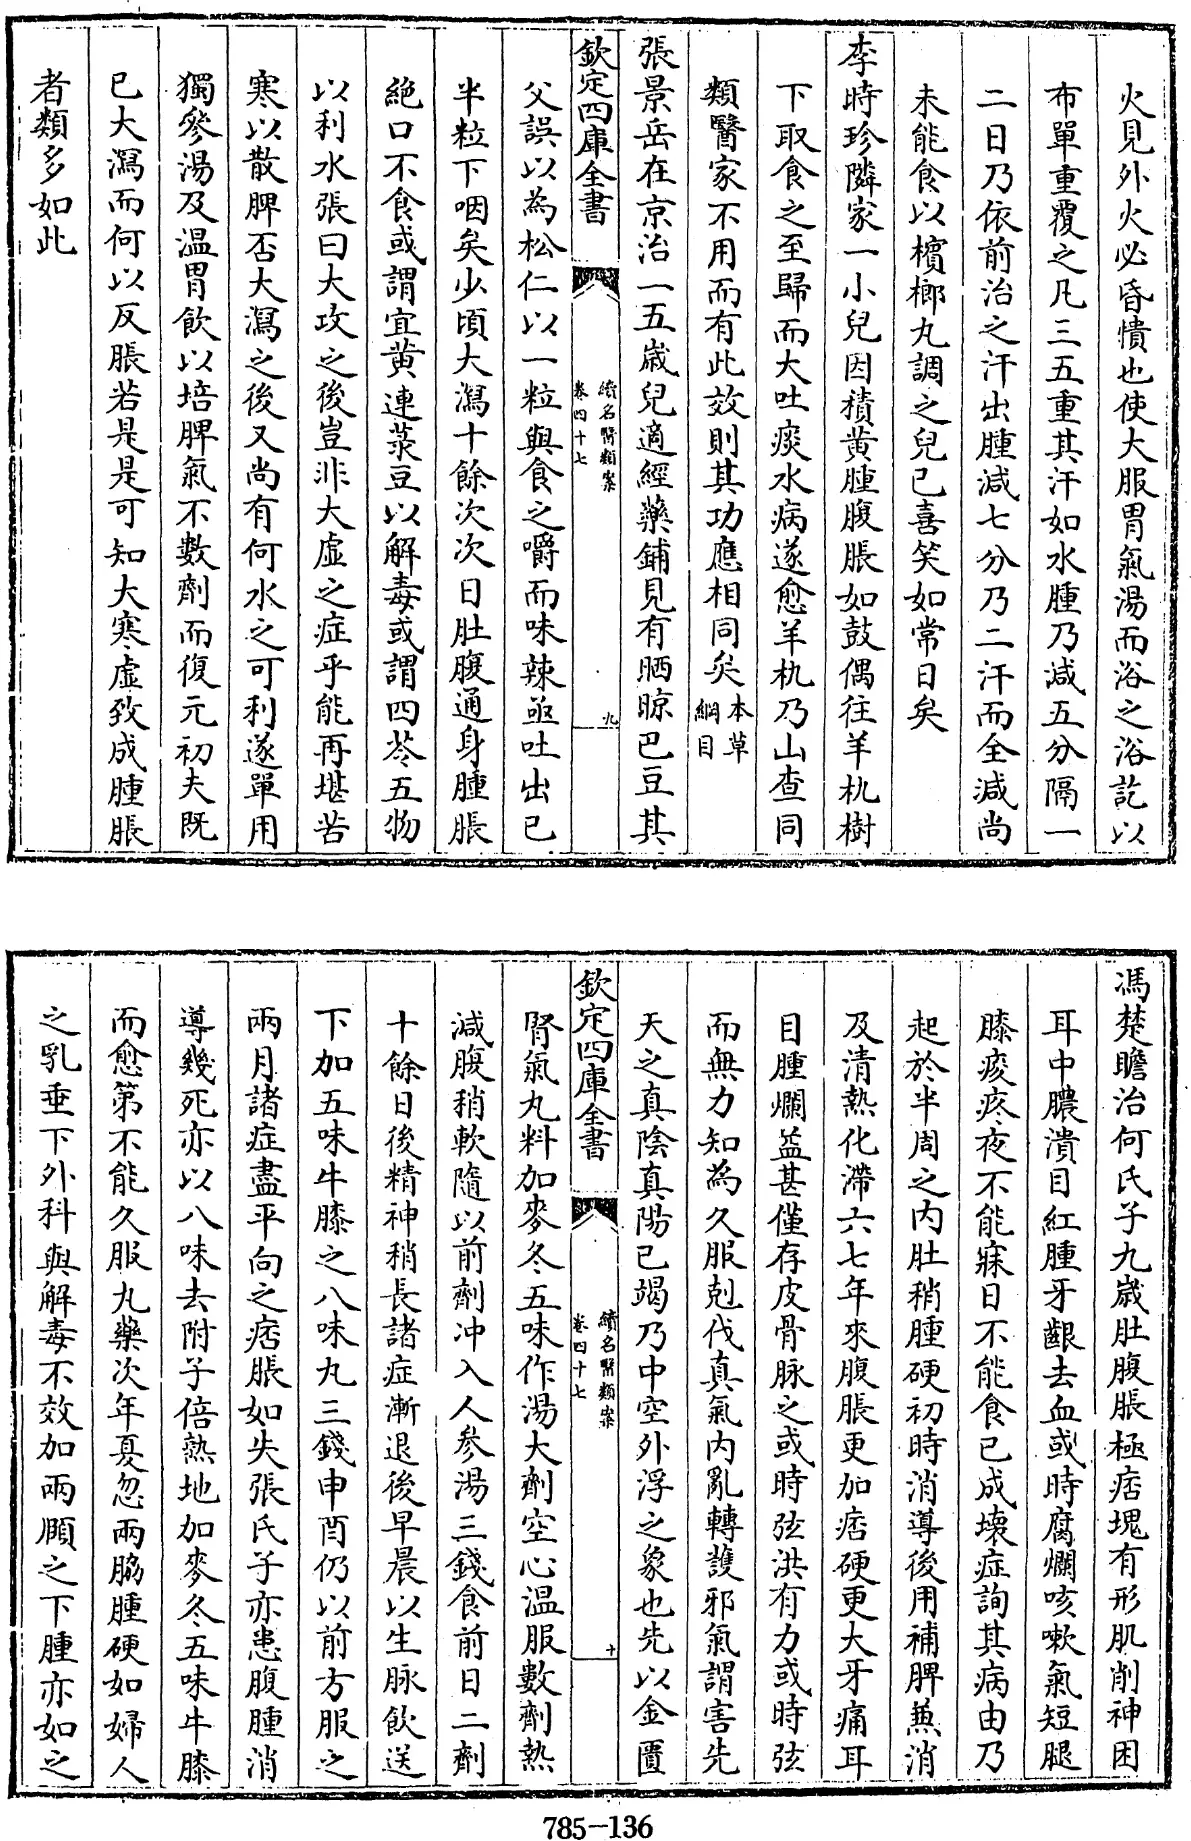 火見外火必昏憒也使大服胃氣湯而浴之浴訖以
布單重覆之凡三五重其汗如水腫乃減五分隔一
二日乃依前治之汗出腫減七分乃二汗而全減尚
未能食以檳榔丸調之兒已喜笑如常日矣
李時珍隣家一小兒因積黄腫腹脹如鼓偶往羊朹樹
下取食之至歸而大吐痰水病遂愈羊朹乃山查同
類醫家不用而有此效則其功應相同矣本草
綱目
張景岳在京治一五歲兒適經藥鋪見有晒晾巴豆其
欽定四庫全書
續名醫類案
卷四十七
九
父誤以為松仁以一粒與食之嚼而味辣亟吐出已
半粒下咽矣少頃大瀉十餘次次日肚腹通身腫脹
絶口不食或謂宜黄連菉豆以解毒或謂四苓五物
以利水張曰大攻之後豈非大虛之症乎能再堪苦
寒以散脾否大瀉之後又尚有何水之可利遂單用
獨參湯及温胃飲以培脾氣不數劑而復元初夫既
已大瀉而何以反脹若是是可知大寒虛致成腫脹
者類多如此
馮楚瞻治何氏子九歲肚腹脹極痞塊有形肌削神困
耳中膿潰目紅腫牙齦去血或時腐爛咳嗽氣短腿
膝痠疼夜不能寐日不能食已成壞症詢其病由乃
起於半周之内肚稍腫硬初時消導後用補脾兼消
及清熱化滯六七年來腹脹更加痞硬更大牙痛耳
目腫爛益甚僅存皮骨脉之或時弦洪有力或時弦
而無力知為久服剋伐真氣内亂轉護邪氣謂害先
天之真陰真陽已竭乃中空外浮之象也先以金匱
欽定四庫全書
續名醫類案
卷四十七
十
腎氣丸料加麥冬五味作湯大劑空心温服數劑熱
減腹稍軟隨以前劑冲入人參湯三錢食前日二劑
十餘日後精神稍長諸症漸退後早晨以生脉飲送
下加五味牛膝之八味丸三錢申酉仍以前方服之
兩月諸症盡平向之痞脹如失張氏子亦患腹腫消
導幾死亦以八味去附子倍熟地加麥冬五味牛膝
而愈第不能久服丸藥次年夏忽兩脇腫硬如婦人
之乳垂下外科與解毒不效加兩頤之下腫亦如之
785-136